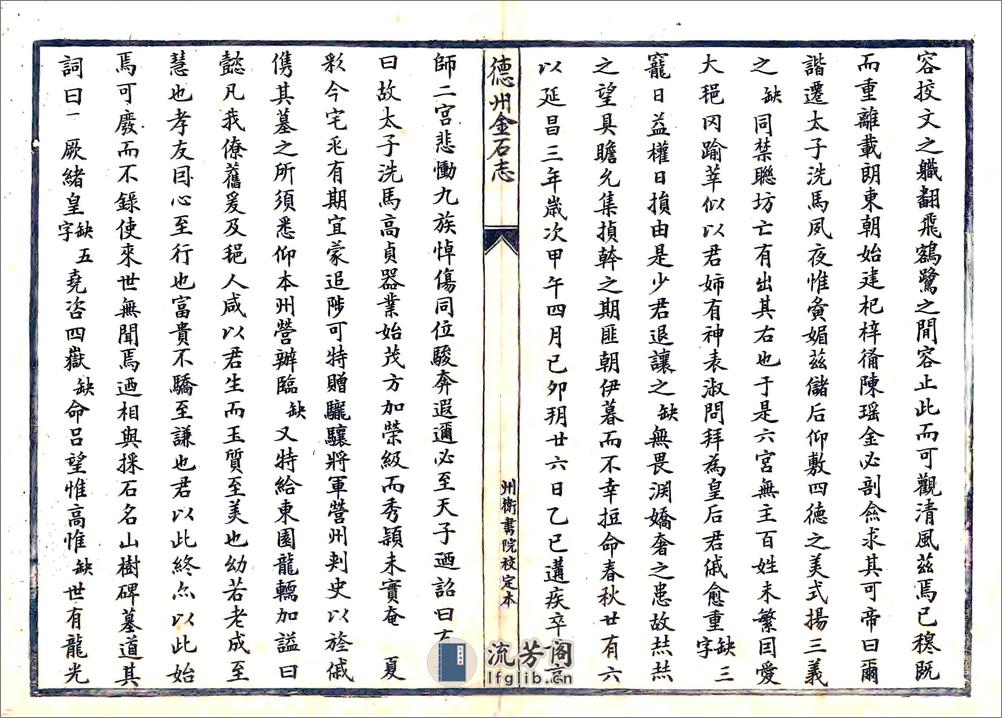 容挍文之職翻飛鵷鷺之閒容止此而可觀清風茲焉已穆既
而重離載朗東朝始建杞梓脩陳瑶金必剖僉求其可帝曰爾
諧遷太子洗馬夙夜惟夤媚茲儲后仰敷四德之美式揚三義
之缺同禁聯坊亡有出其右也于是六宮無主百姓未繁囙愛
大䄊冈踰莘似以君姉有神表淑問拜為皇后君戚愈重缺三字
寵日益權日損由是少君退讓之缺無畏渕嬌奢之患故烝烝
之望具瞻允集揁幹之期匪朝伊暮而不幸短命春秋廿有六
以延昌三年歲次甲午四月己卯玥廿六日乙巳遘疾卒京
德州金石志
州衛書院校定本
師二宮悲慟九族悼傷同位駿奔遐邇必至天子迺詔曰
曰故太子洗馬高貞器業始茂方加榮級而秀頴未實奄夏
彩今宅兆有期宜蒙追陟可特贈驪驤將軍營州刾史以旌戚
儁其墓之所須悉仰本州營辦臨缺又特給東園龍轜加謚曰
懿凡我僚舊爰及䄊人咸以君生而玉質至美也幼若老成至
慧也孝友囙心至行也富貴不驕至謙也君以此終尒以此始
焉可廢而不錄使來世無聞焉迺相與採石名山樹碑墓道其
詞曰一厥緒皇缺五字堯咨四嶽缺命呂望惟高惟缺世有龍光
流芳阁
lfglib.cn